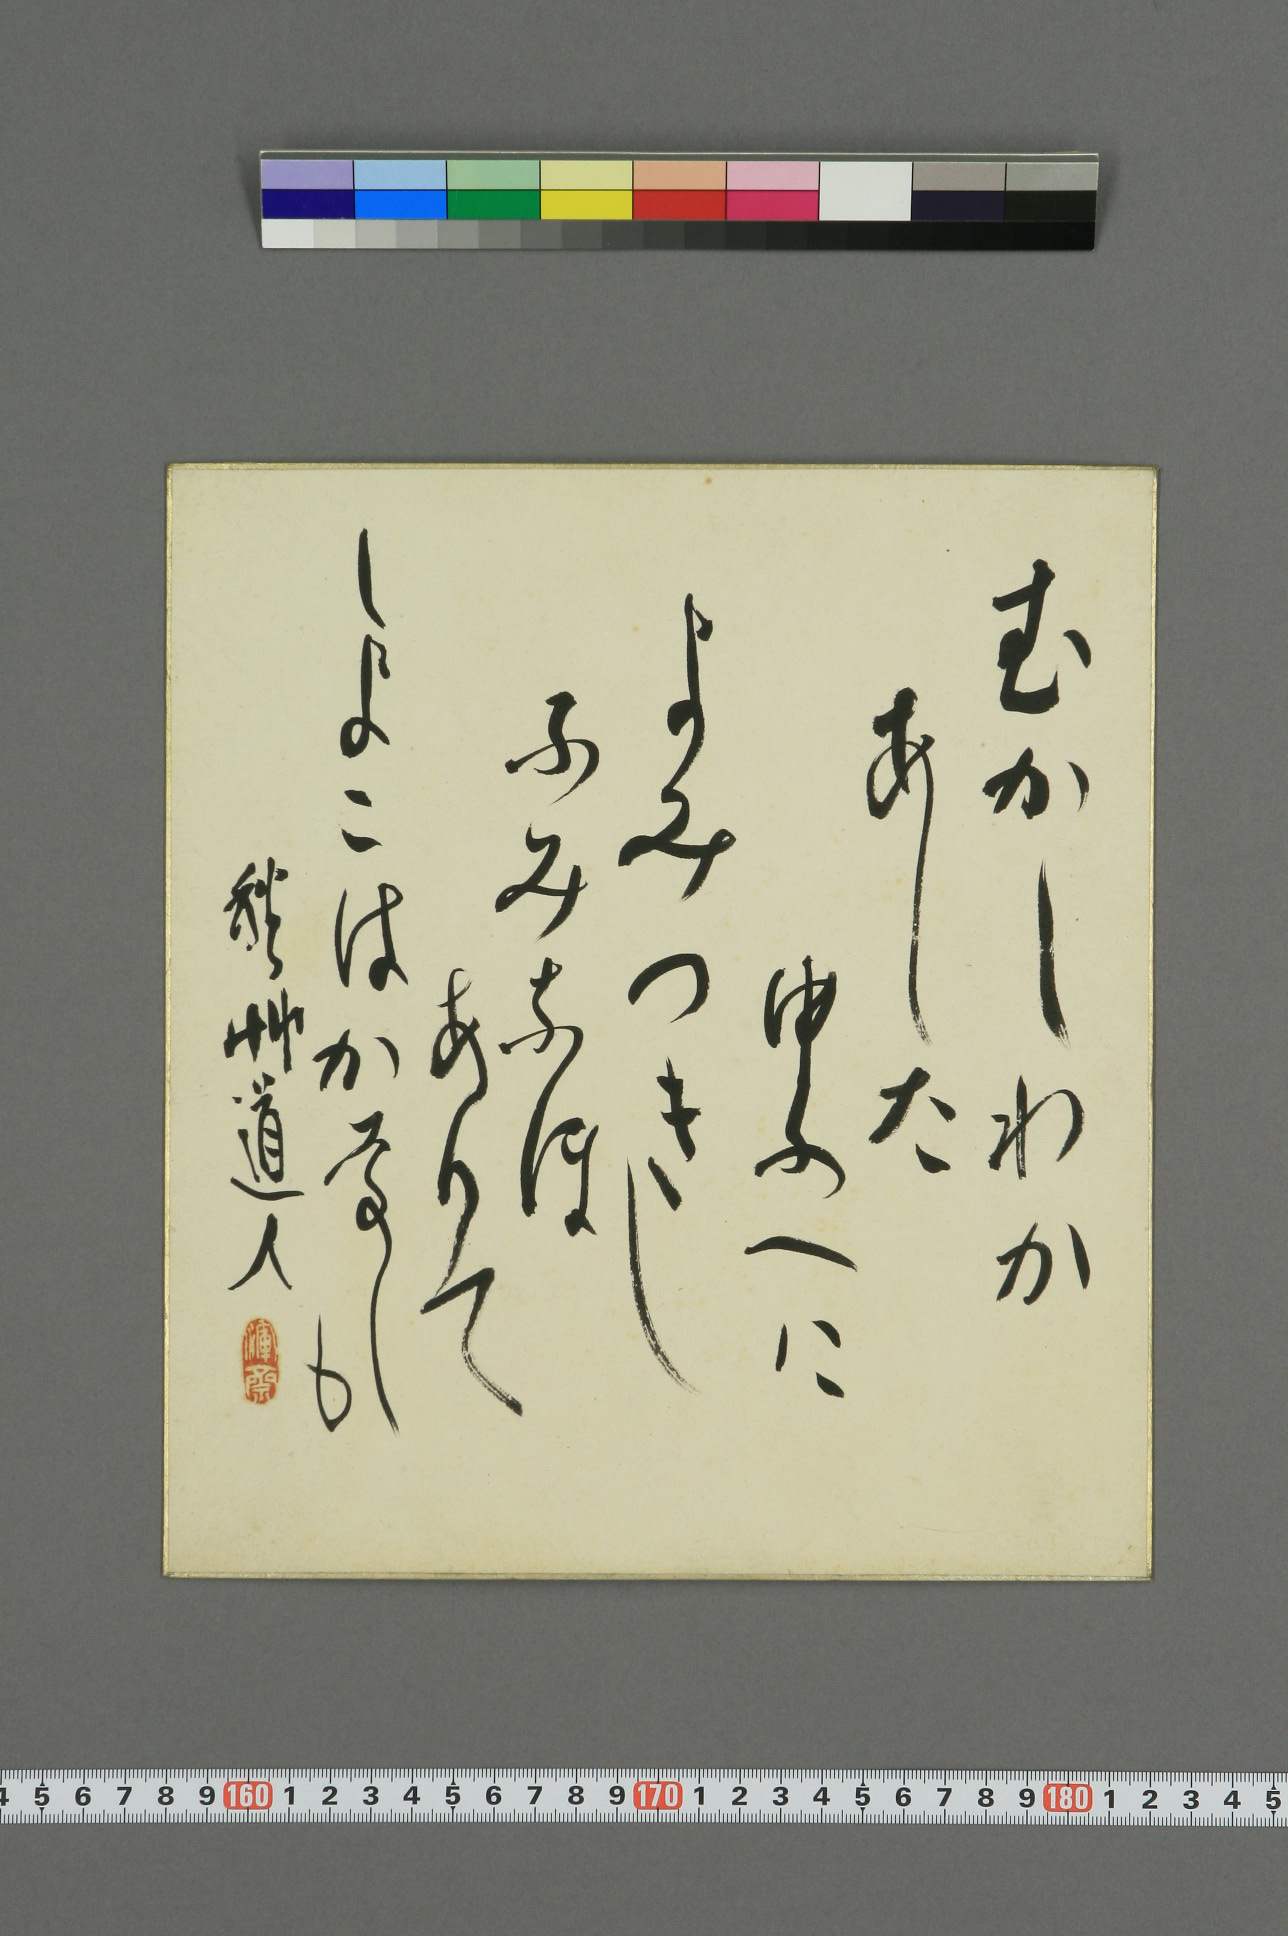 むかしわか
あした
ゆふへに
よみつきし
ふみなほ
ありて
しよこはかなしも
秋艸道人
渾齋
4 5 6 7 8 9 160 1 2 3 4 5 6 7 8 9 170 1 2 3 4 5 6 7 8 9 180 1 2 3 4 5